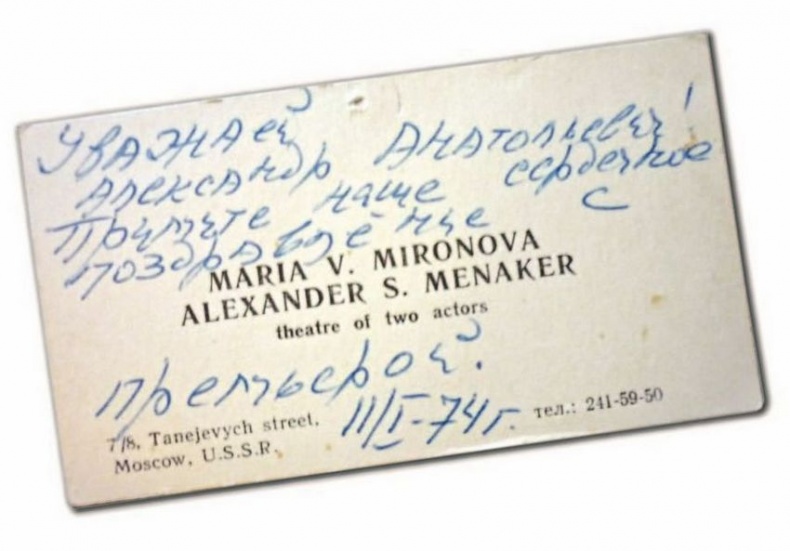 Уважаей
Александр Анатольевич!
Примите наше сердечное
поздравление с
MARIA V. MIRONOVA
ALEXANDER S. MENAKER
theatre of two actors
премьерой.
11/I-74г.
7/8, Tanejevych street, тел.: 241-59-50
Moscow, U.S.S.R.